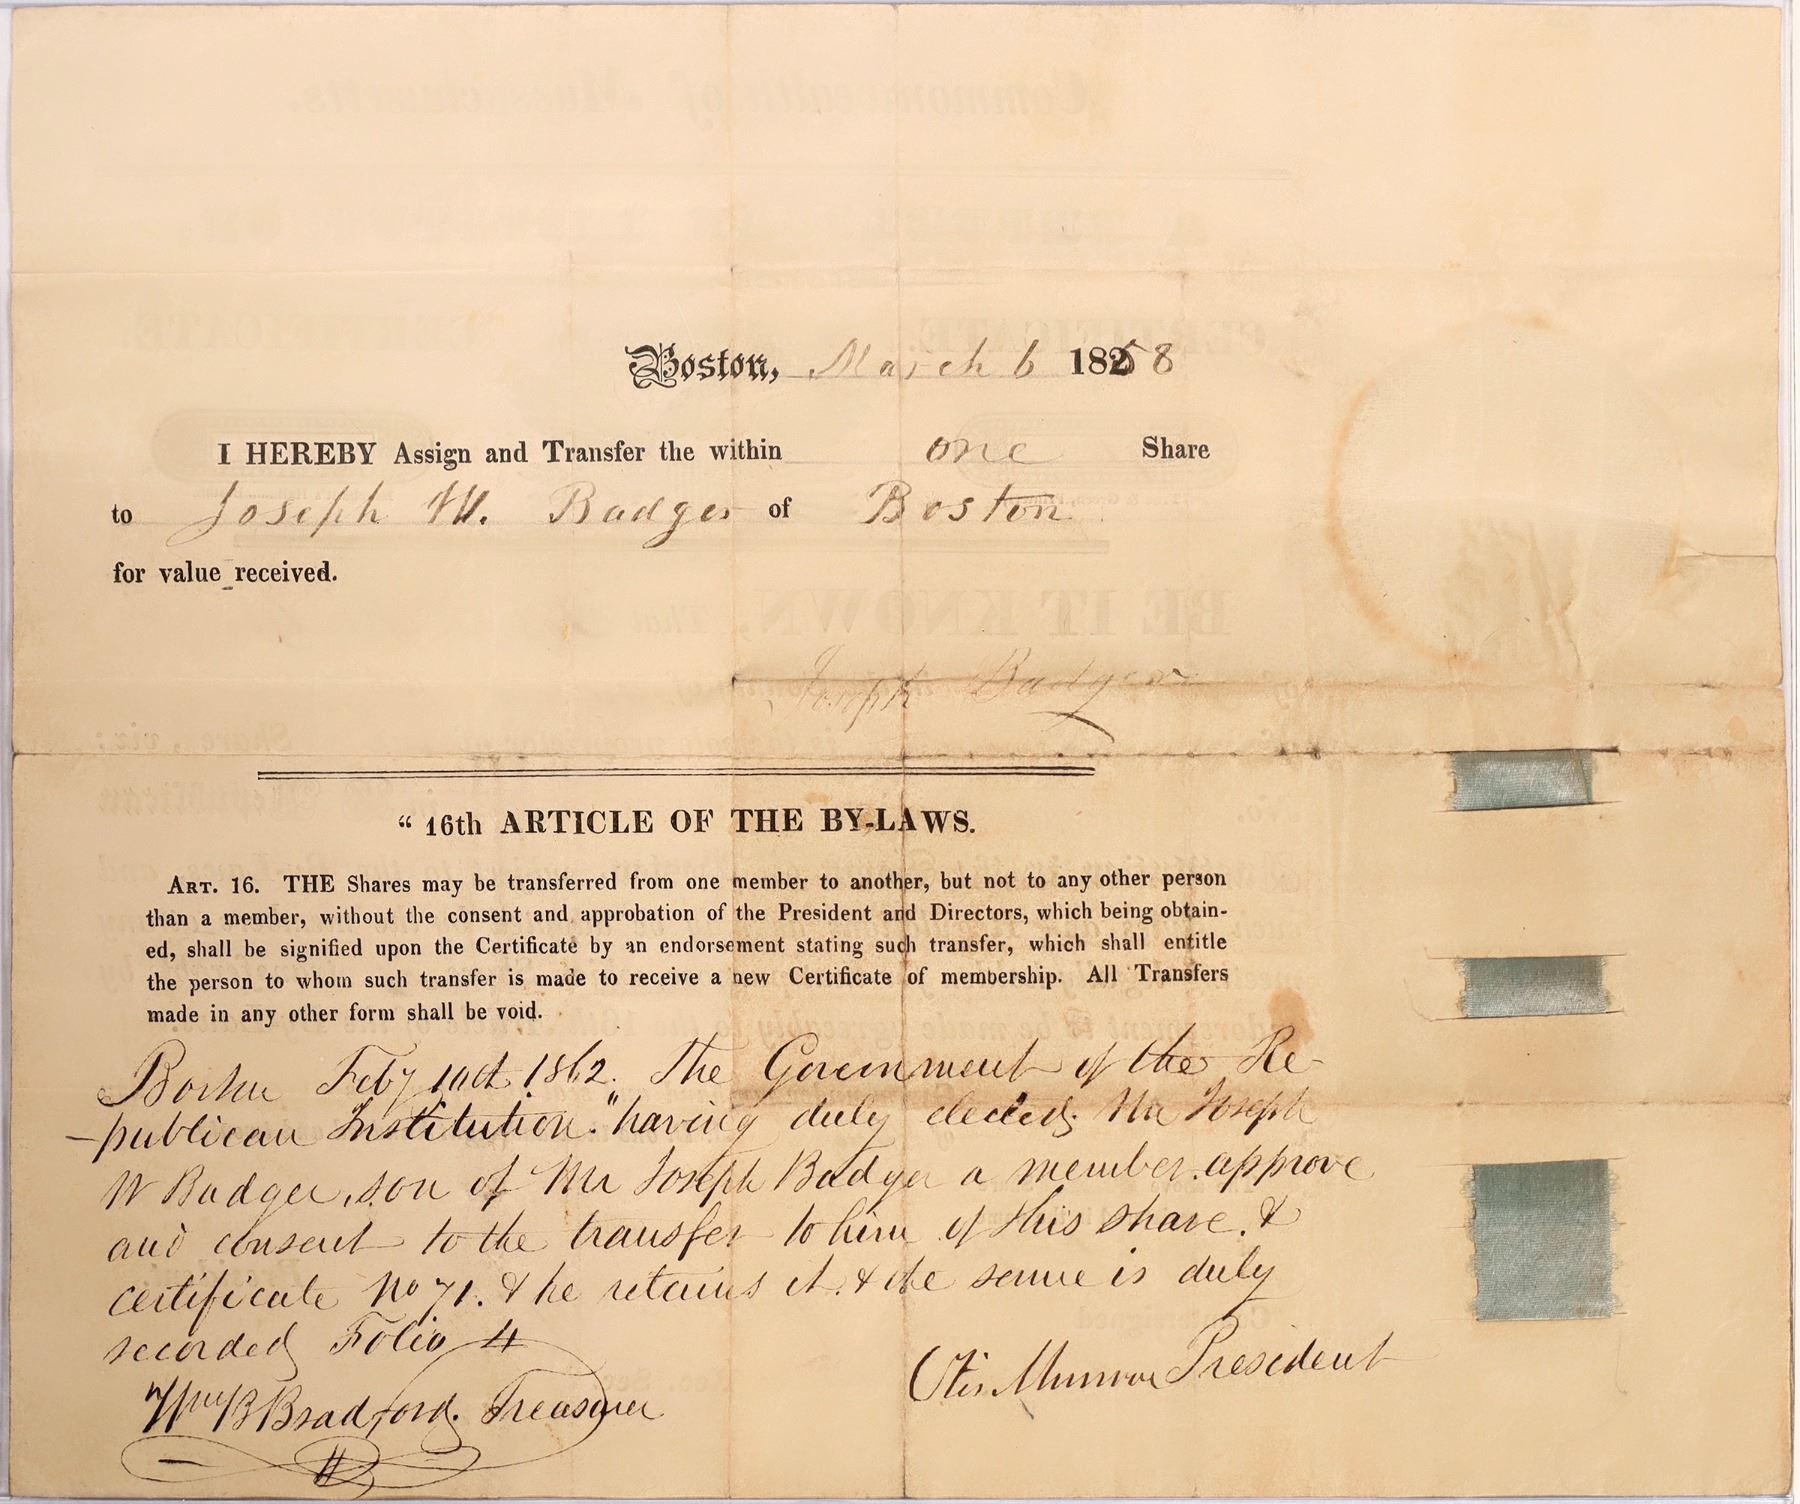 Boston, March 6 1858
I HEREBY Assign and Transfer the within one Share
to Joseph W. Badger of Boston
for value received.
Joseph Badger
“ 16th ARTICLE OF THE BY-LAWS.
ART. 16. THE Shares may be transferred from one member to another, but not to any other person
than a member, without the consent and approbation of the President and Directors, which being obtain-
ed, shall be signified upon the Certificate by an endorsement stating such transfer, which shall entitle
the person to whom such transfer is made to receive a new Certificate of membership. All Transfers
made in any other form shall be void.
Boston Feby 1862. The Government of the Re-
-publican Institution." having duly elected Mr Joseph
W Badger, son of Mr Joseph Badger a member. approve
and consent to the transfer to him of this share. &
certificate No 71. & he retains it. & the same is duly
recorded Folio 4
Otis Munroe President
Wm B Bradford. Treasurer